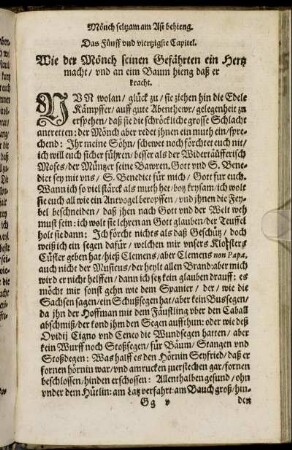 Mönch selzam am Ast behieng.
Das Fünff und viertzigste Capitel.
Wie der Mönch seinen Gefährten ein Hertz
macht / vnd an eim Baum hieng daß er
kracht.
NVN wolan / glück zu / sie ziehen hin die Edele
Kämpffer / auff gute Abenthewr / gelegenheit zu
erspehen / daß sie die schröcklichegrosse Schlacht
antretten: der Mönch aber redet jhnen ein muth ein / spre-
chend: Ihr meine Söhn / schewet noch förchtet euch nit /
ich will euch sicher führen / besser als der Widertäufferisch
Moses / der Müntzer seine Bawren. Gott vnd S. Bene
dict sey mit vns / S. Benedict für mich / Gott fur euch.
Wann ich so viel stärck als muth het / botz krysam / ich wolt
sie euch all wie ein Antvogel beropffen / vnd jhnen die Fey-
bel beschneiden / daß jhen nach Gott vnd der Welt weh
must sein: ich wolt sie lehren an Gott glauben / der Teuffel
holt sie dann: Ich förcht nichts als daß Geschütz / doch
weiß ich ein segen dafür / welchen mir vnsers Klosters
Cüster geben hat: hieß Clemens / aber Clemens non Papa,
auch nicht der Musicus / der heylt allen Brand: aber mich
wird er nicht helffen / dann ich key kein glauben drauff: es
möcht mir sonst gehn wie dem Spanier / der / wie die
Sachsen sagen / ein Schußsegen hat / aber kein Bussegen /
da jhn der Hoffman mit dem Fäustling vber den Caball
abschmiß / der kond jhm den Segen auffthun: oder wie deß
Ovidij Cigno vnd Ceneo die Wundsegen hatten / aber
kein Wurff noch Stoßsegen / für Bäum / Stangen vnd
Stoßdegen: Was halff es den Hörnin Seyfried / daß er
fornen hörnin war / vnd am rucken zuerstechen gar / fornen
beschlossen / hinden erschossen: Allenthalben gesund / ohn
vnder dem Hütlin: am halz verfahrt: am Bauch groß / hin-
Gg v den